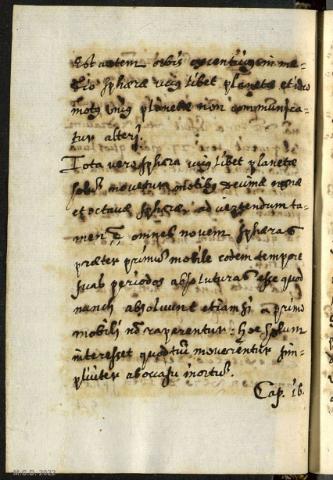 Est autem orbis excentricus in me-
dio sphæræ cuiuslibet planetæ et ideo
motus unius planetæ non communica-
tur alteri.
Tota vero sphæra cuiuslibet planetæ
solum movetur motibus decimæ nonæ
et octavæ sphæræ, advertendum ta-
men e omnes novem sphæras
præter primum mobile eodem tempore
suas periodos absoluturas esse quod
nunch absolvunt etiamsi a primo
mobili nō raperentur: Hoc solum
interesset quod tūc moverentur sim-
pliciter ab occasu in ortus.
Cap. 16.